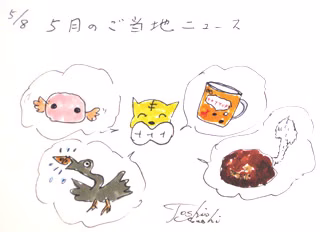 5/8
5月のご当地ニュース
Toshio